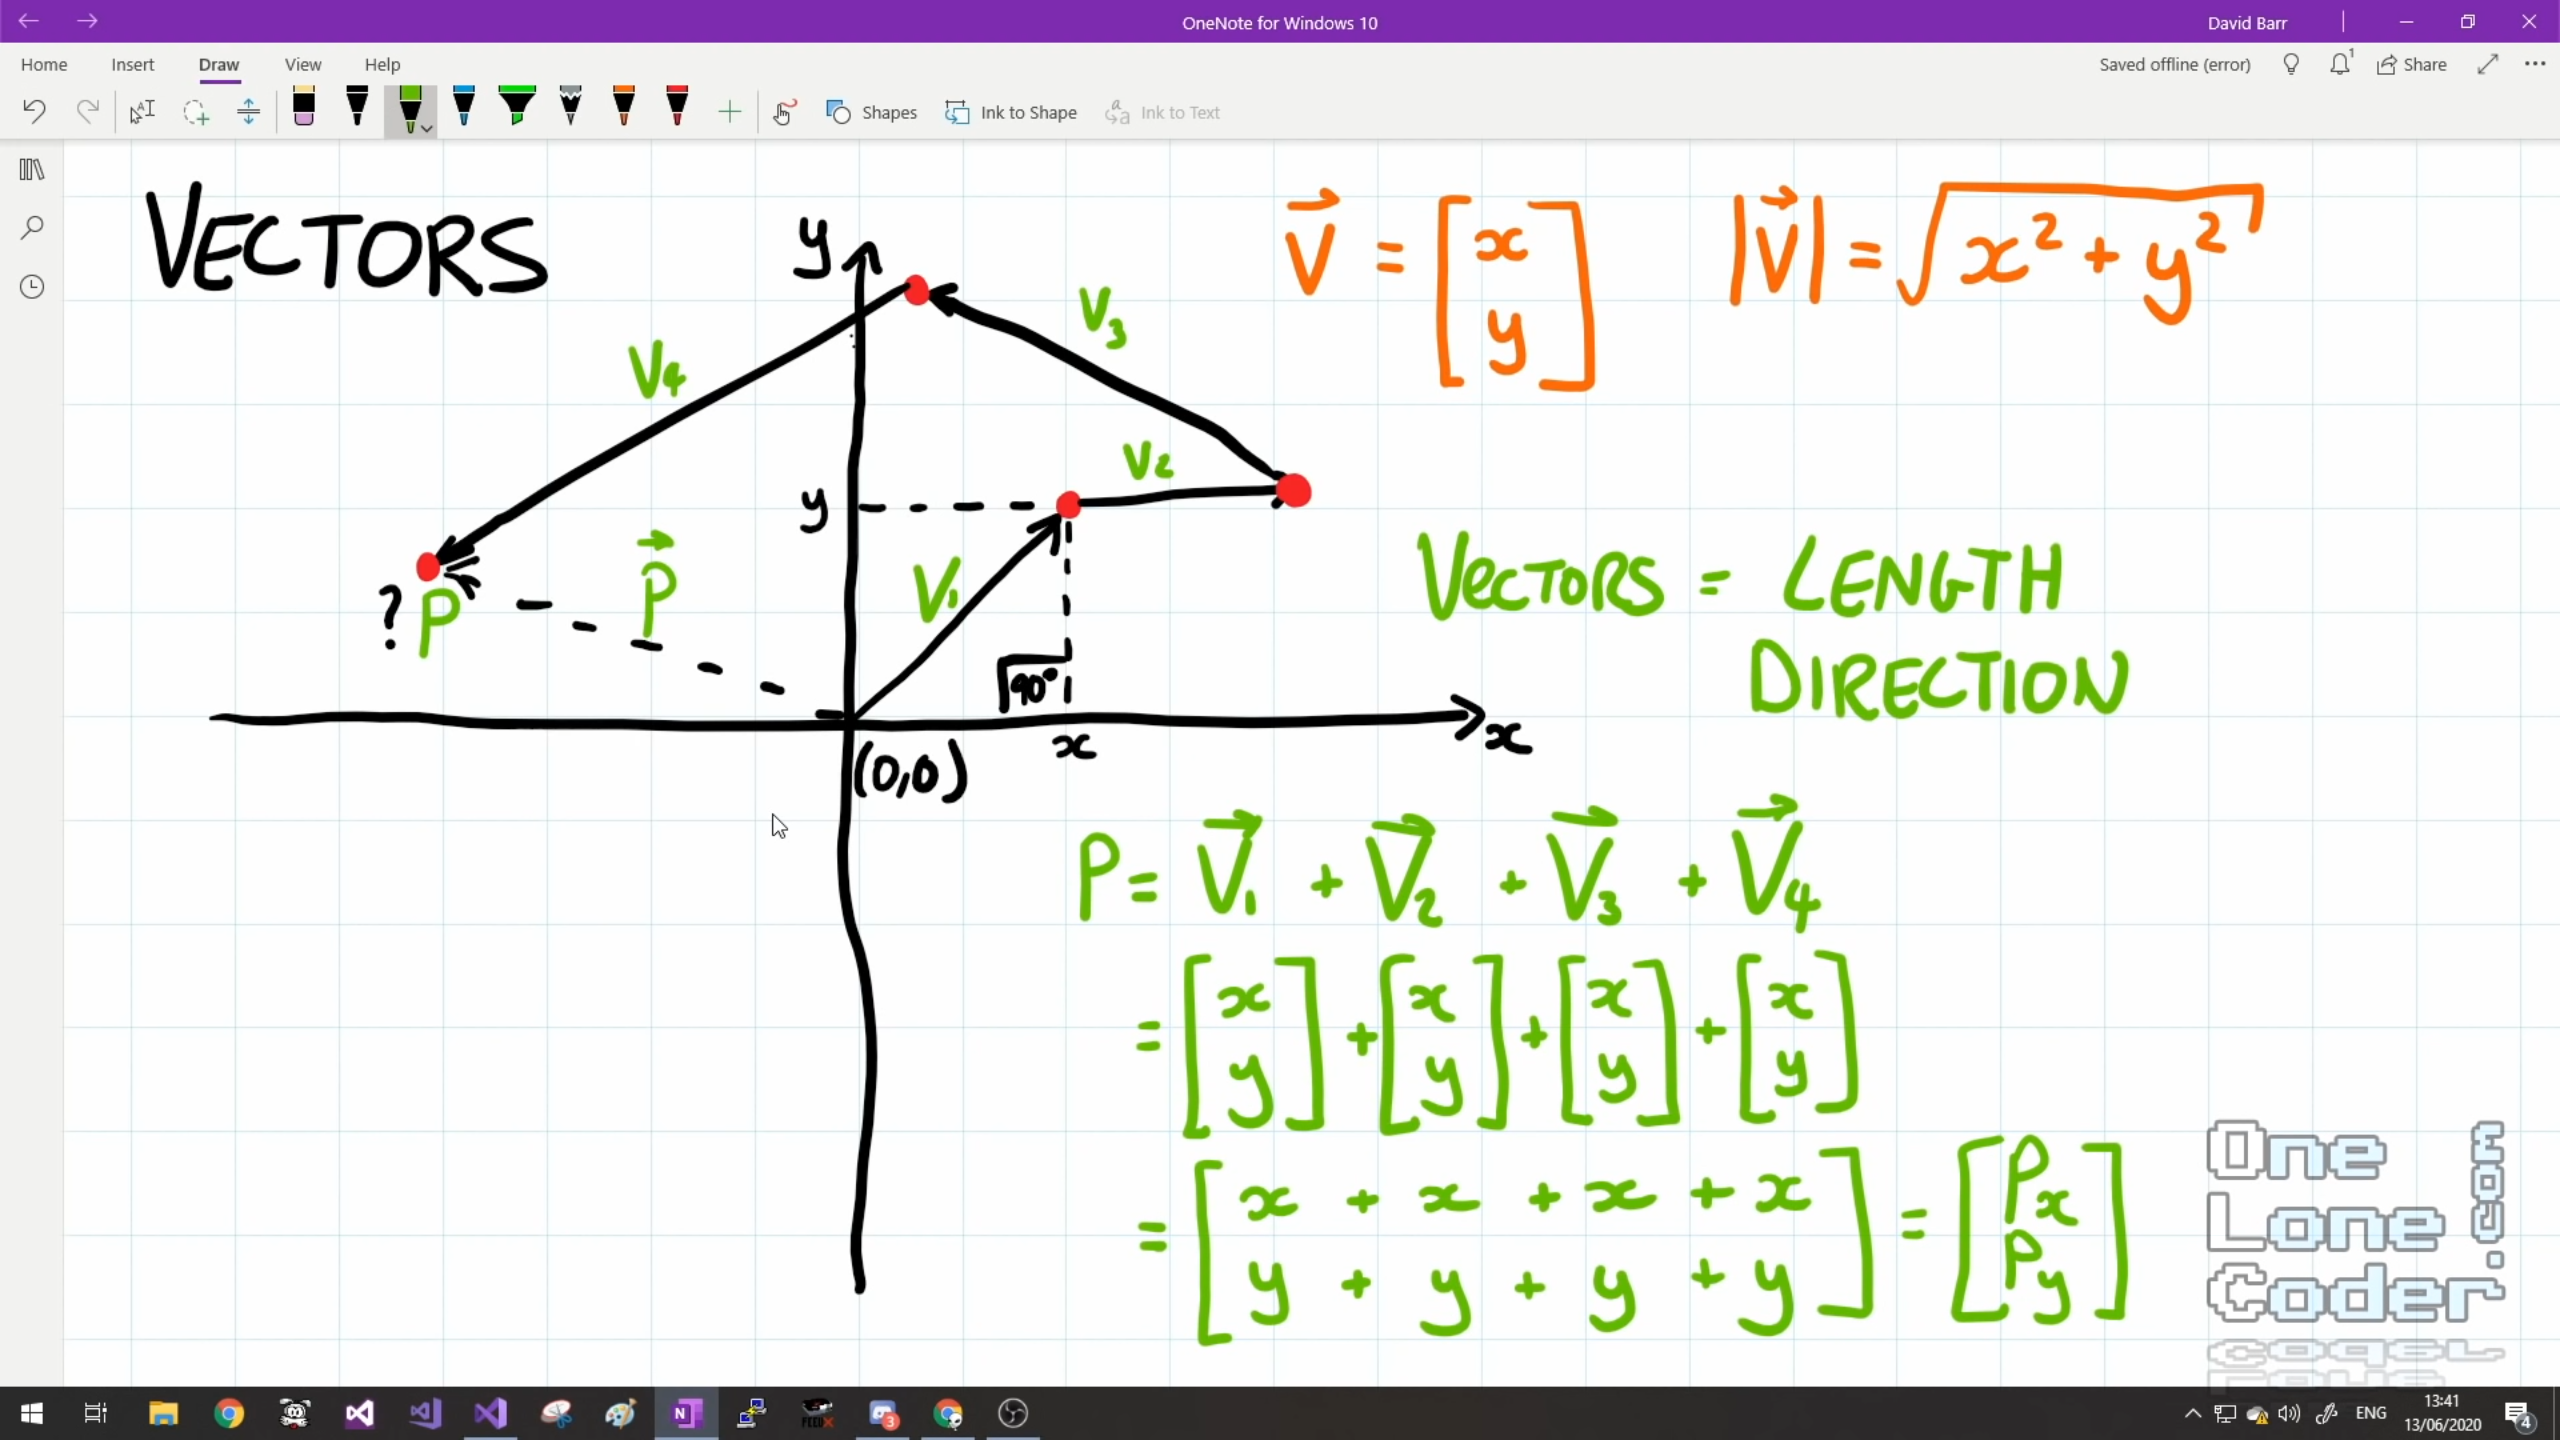 OneNote for Windows 10
David Barr
Home Insert Draw View Help
Saved offline (error)
1
Share
Shapes
Ink to Shape
Ink to Text
VECTORS
y
V⃗ = [x y]
|V⃗| = √x² + y²
V₃
V₄
V₂
y
P⃗
V₁
? P
90°
VECTORS = LENGTH
DIRECTION
x
x
(0,0)
P = V⃗₁ + V⃗₂ + V⃗₃ + V⃗₄
= [x y] + [x y] + [x y] + [x y]
= [x + x + x + x
y + y + y + y] = [Px Py]
One
Lone
Coder
.com
N
3
ENG
13:41
13/06/2020
4